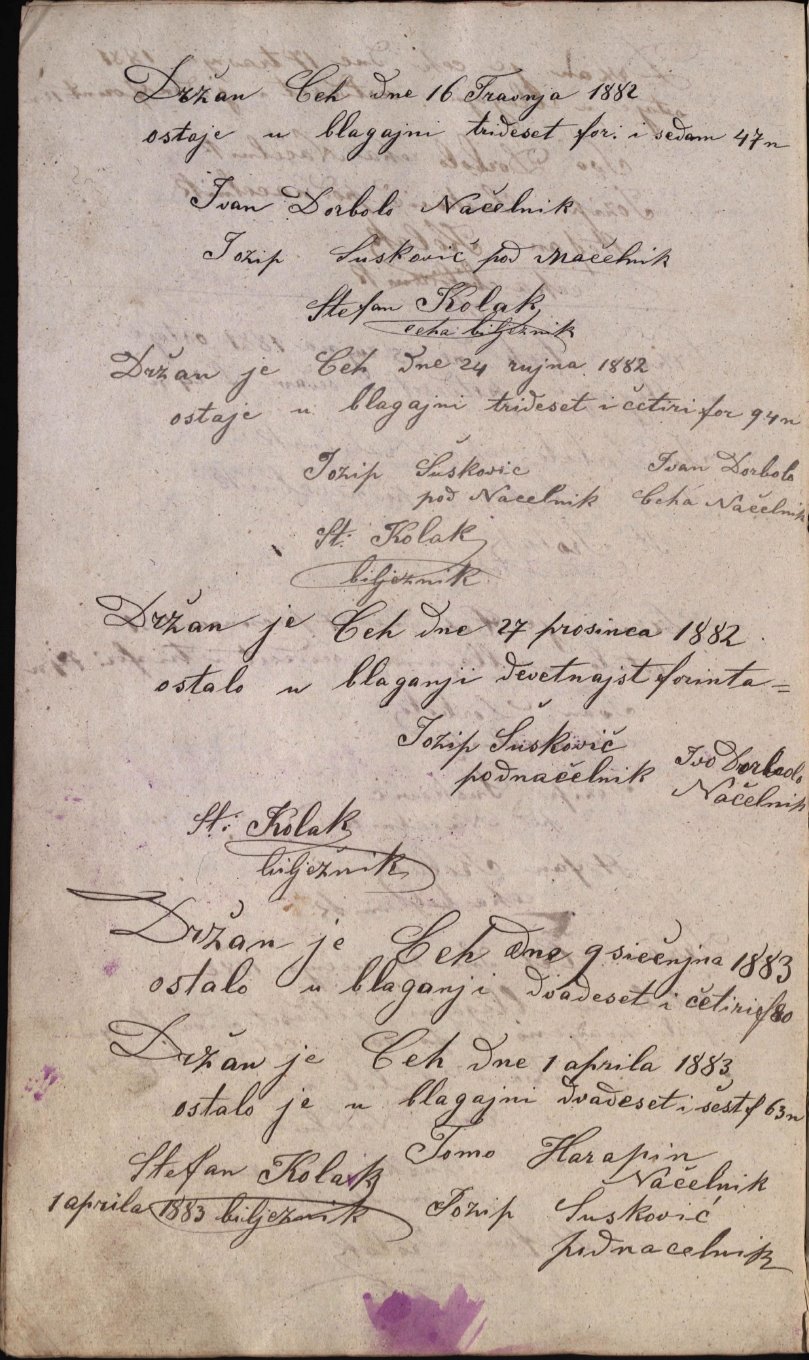 Držan Ceh dne 16 Travnja 1882
ostaje u blagajni trideset for: i sedam 47 n
Ivan Dorbolo Načelnik
Jozip Susković pod Načelnik
Stefan Kolak
ceha biljeznik
Držan je Ceh dne 24 rujna 1882
ostaje u blagajni trideset i četiri for 94 n
Jozip Šuskovic Ivan Dorbolo
pod Nacelnik Ceha Načelnik
St: Kolak
biljeznik
Držan je Ceh dne 27 prosinca 1882
ostalo u blaganji devetnajst forinta =
Jozip Šusković Ivo Dorbolo
podnačelnik Načelnik
St: Kolak
bilježnik
Držan je Ceh dne 9 siečnjna 1883
ostalo u blaganji dvadeset i četiri f 80
Držan je Ceh dne 1 aprila 1883
ostalo je u blagajni dvadeset i šest f 63 n
Stefan Kolak Tomo Harapin
Načelnik
1 aprila 1883 biljeznik Jozip Susković
podnacelnik